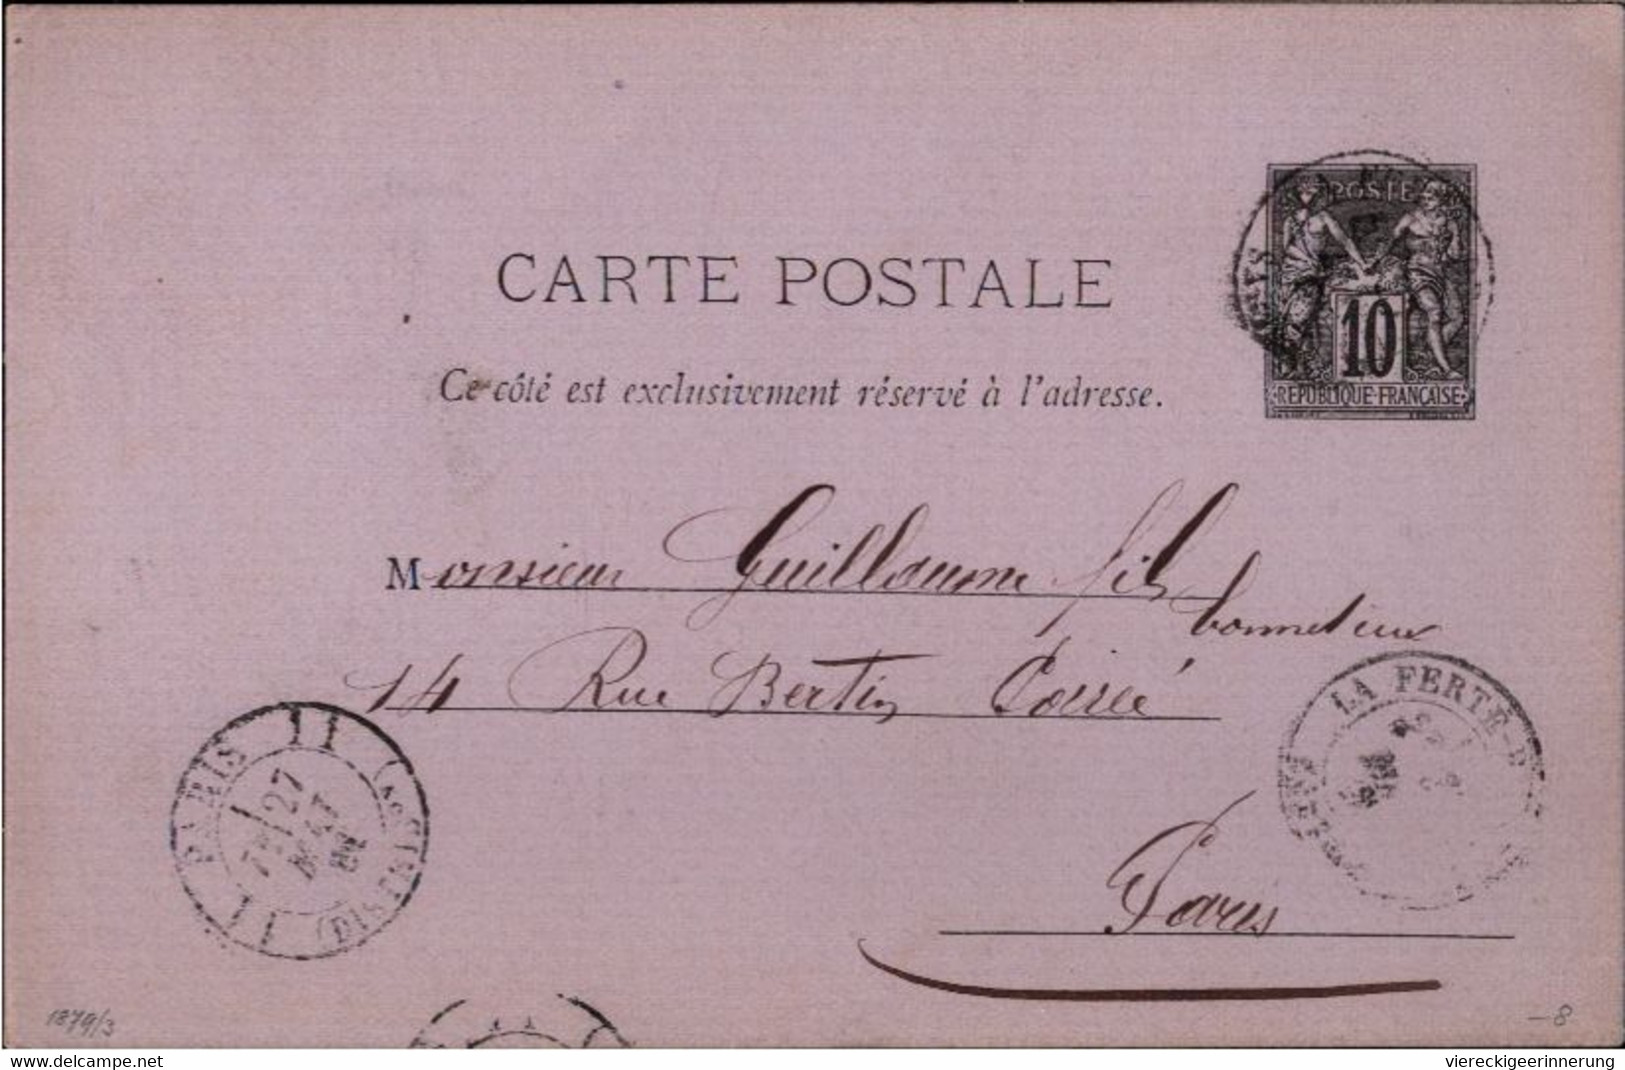 POSTE
10
REPUBLIQUE FRANÇAISE
CARTE POSTALE
Ce côté est exclusivement réservé à l'adresse.
Monsieur Guillaume fils
bonnetier
14 Rue Bertin Poirée
LA FERTÉ-
PARIS 11
(DISTRIB
27
MAI
11
Paris
1879/3
-8
www.delcampe.net
viereckigeerinnerung